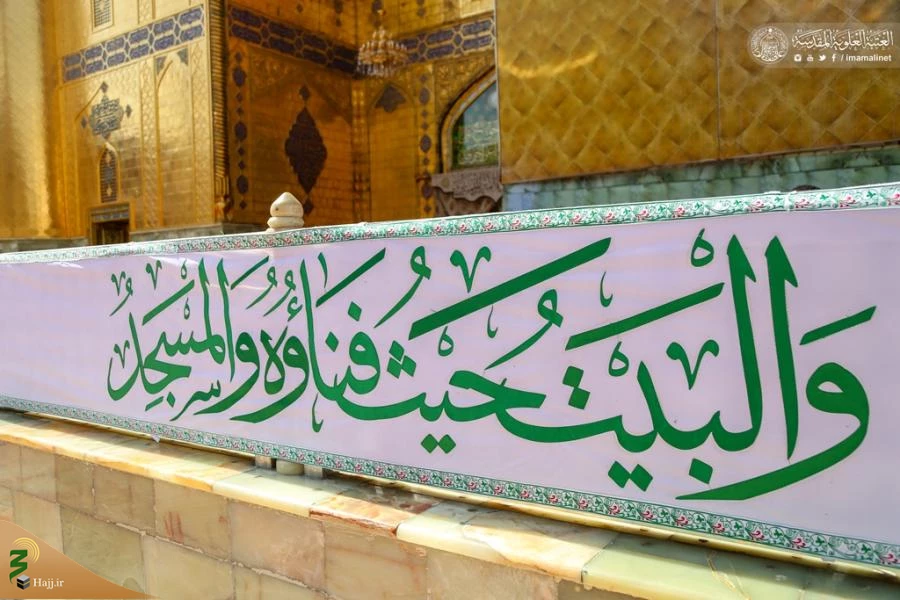 العتبة العلوية المقدسة
/ imamalinet
وَالْبَيْتُ حَيْثُ فِنَاؤُهُ وَالْمَسْجِدُ
Hajj.ir